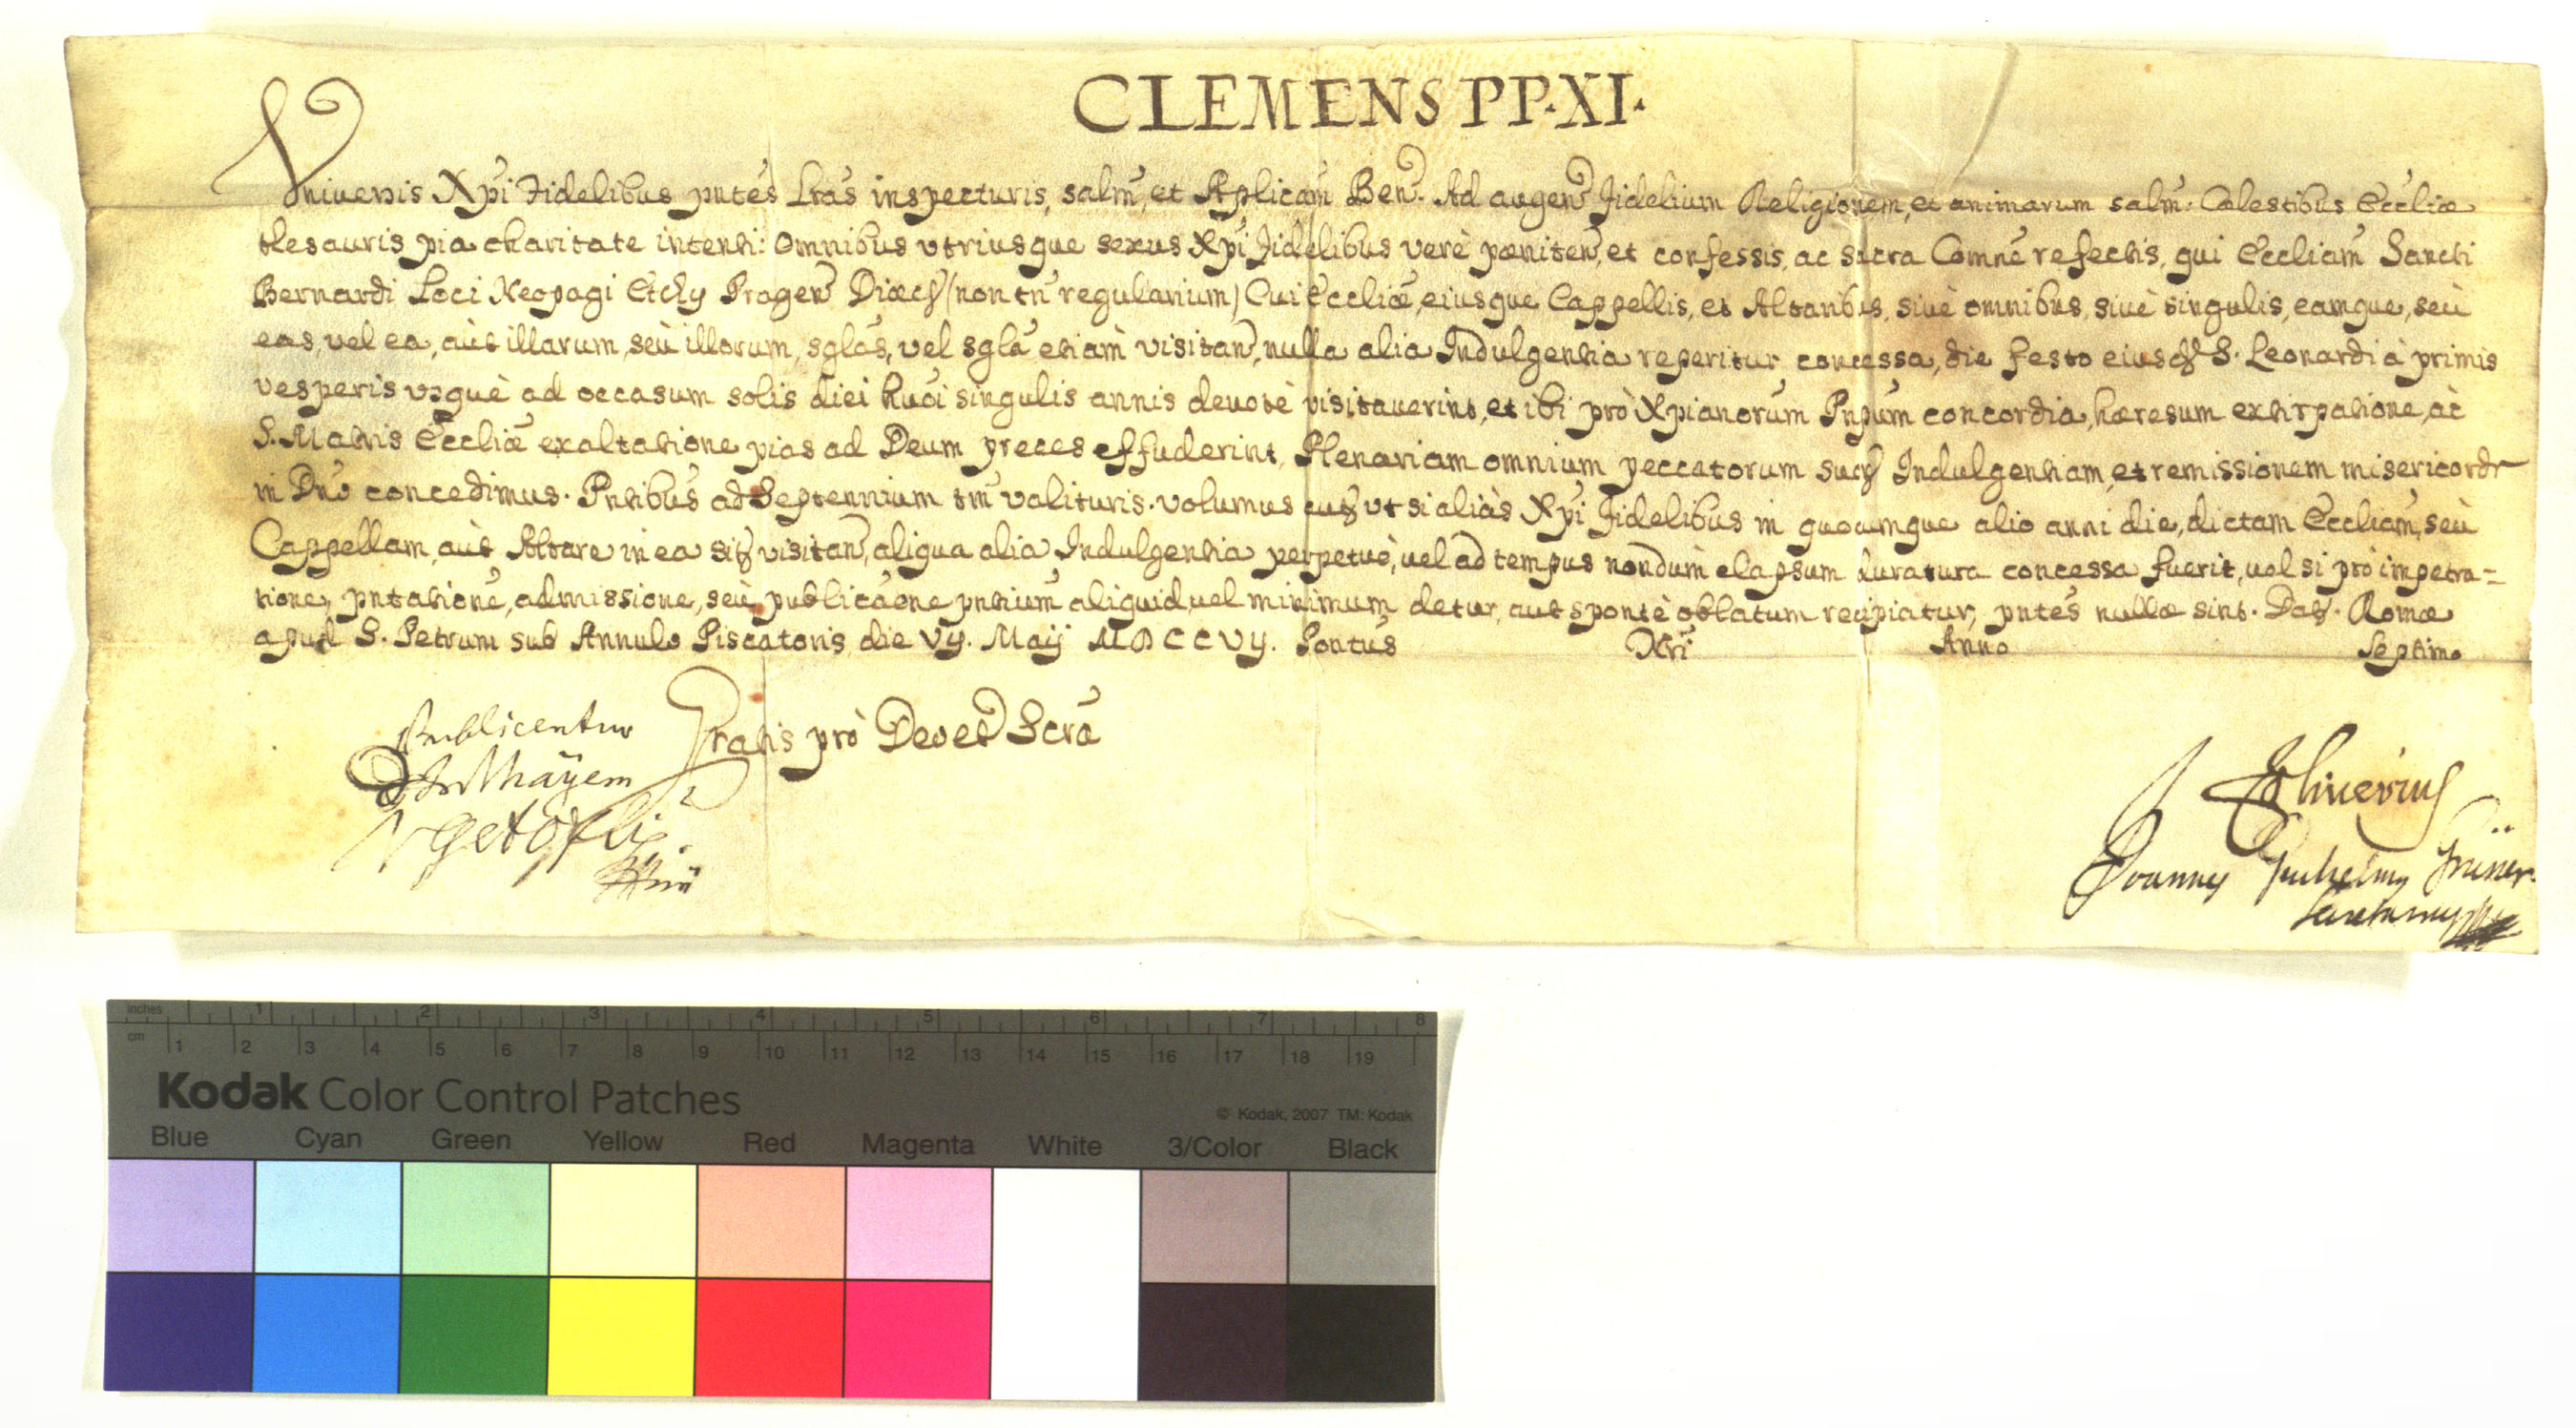 CLEMENS PP. XI.
Vniversis Xpi Fidelibus pntes Lras inspecturis, salm, et Aplicam Ben. Ad augen Fidelium Religionem, et animarum salm. Cælestibus Eccliæ
thesauris pia charitate intenti: Omnibus vtriusque sexus Xpi Fidelibus verè pœniten, et confessis, ac sacra Comne refectis, qui Eccliam Sancti
Bernardi Loci Neopagi Pragen Diæc (non tn regularium) Cui Eccliæ, eiusque Cappellis, et Altaribus, sivè omnibus, sivè singulis, eamque, seù
eas, vel ea, aùt illarum, seù illorum, sglas, vel sgla etiàm visitan, nulla alia Indulgentia reperitur concessa, die festo eiusd S. Leonardi à primis
vesperis vsquè ad occasum solis diei huõi singulis annis devotè visitaverint, et ibi prò Xpianorum Pnpum concordia, hæresum extirpatione, àc
S. Matris Eccliæ exaltatione pias ad Deum preces effuderint, Plenariam omnium peccatorum suor Indulgentiam, et remissionem misericordr
in Dno concedimus. Pntibus ad Septennium tm valituris. volumus aut vt si aliàs Xpi Fidelibus in quocumque alio anni die, dictam Eccliam, seù
Cappellam, aùt Altare in ea sit visitan, aliqua alia Indulgentia perpetuò, vel ad tempus nondùm elapsum duratura concessa fuerit, vel si prò impetra=
tione, pntatione, admissione, seù publicaone pntium aliquid vel minimum detur, aut spontè oblatum recipiatur, pntes nullæ sint. Dat. Romæ
apud S. Petrum sub Annulo Piscatoris die Vij. Maij MDCCVij. Pontus Nri Anno Septimo
Publicentur
Gratis prò Deo et Scra
Oliverius
inches 1 2 3 4 5 6 7 8
cm 1 2 3 4 5 6 7 8 9 10 11 12 13 14 15 16 17 18 19
Kodak Color Control Patches
© Kodak, 2007 TM: Kodak
Blue Cyan Green Yellow Red Magenta White 3/Color Black